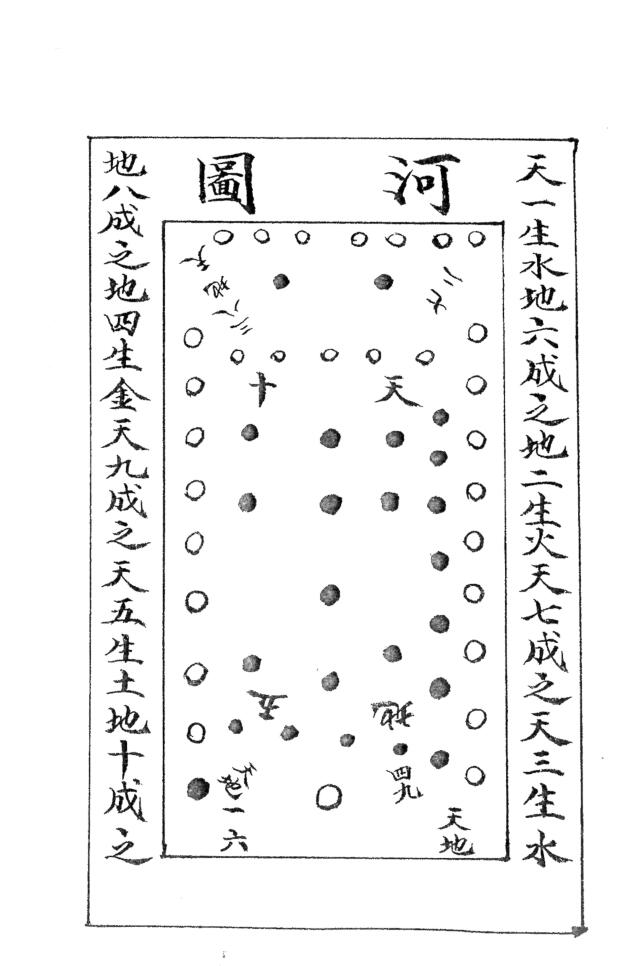 天一生水地六成之地二生火天七成之天三生水
河圖
二七
三八
天十
地五
四九
天地
天地一六
地八成之地四生金天九成之天五生土地十成之